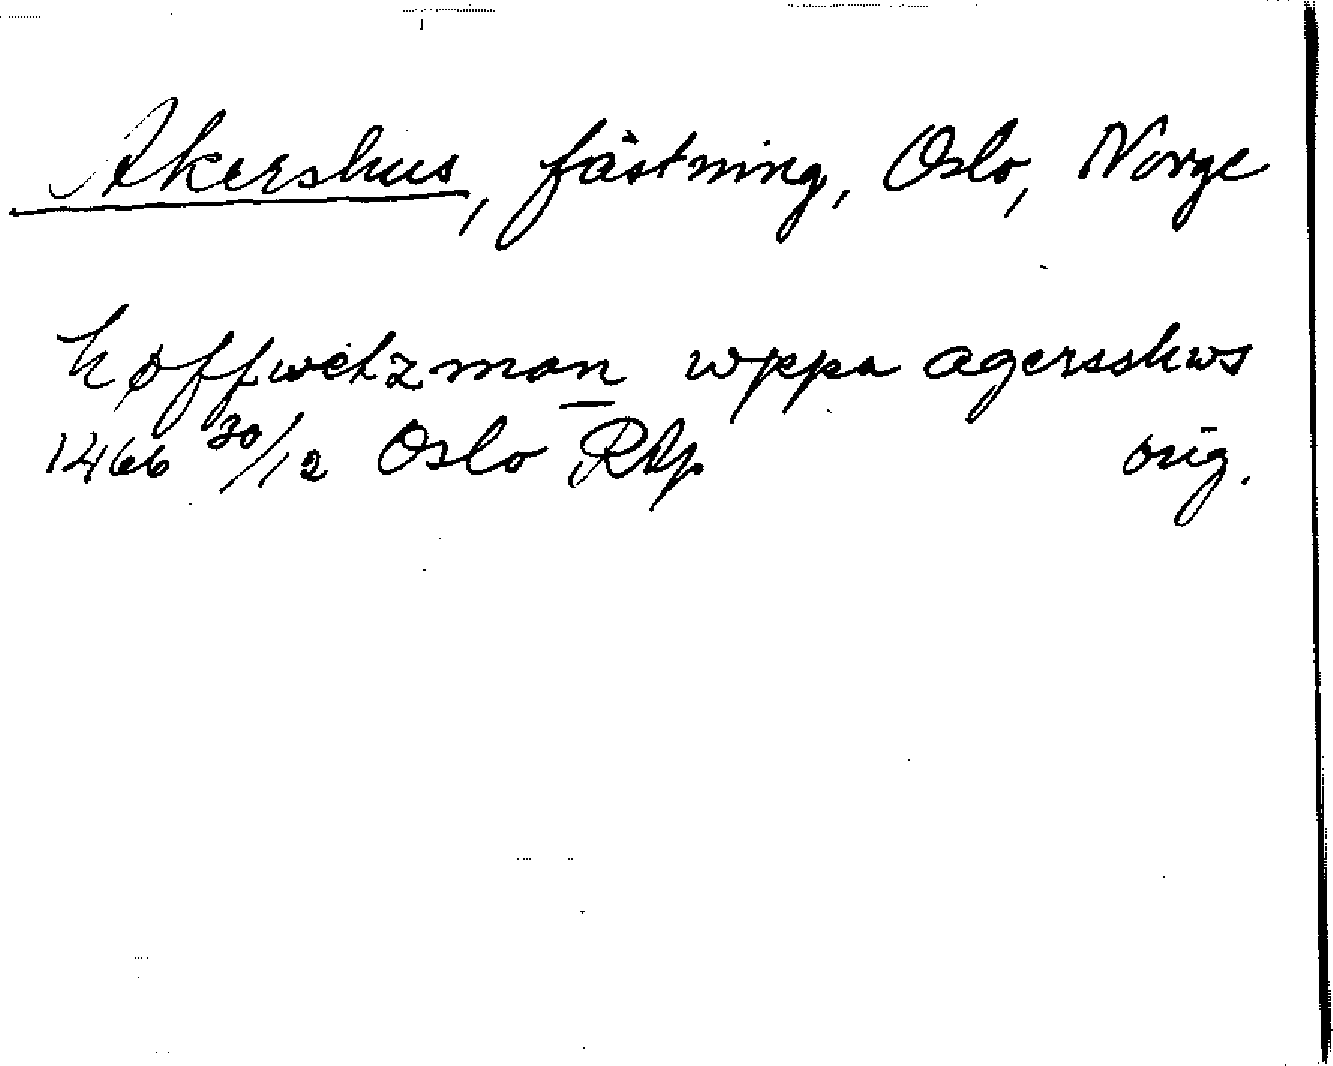 Akershus, fästning, Oslo, Norge
høffwetzman wppa agersshws
1466 30/12 Oslo RAp orig.